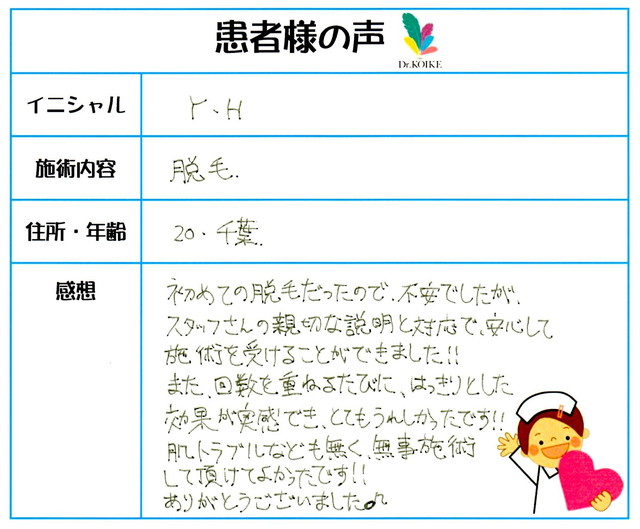 患者様の声
Dr.KOIKE
イニシャル
Y、H
施術内容
脱毛.
住所・年齢
20・千葉.
感想
初めての脱毛だったので、不安でしたが、
スタッフさんの親切な説明と対応で、安心して
施術を受けることができました!!
また、回数を重ねるたびに、はっきりとした
効果が実感でき、とてもうれしかったです!!
肌トラブルなども無く、無事施術
して頂けてよかったです!!
ありがとうございました♪